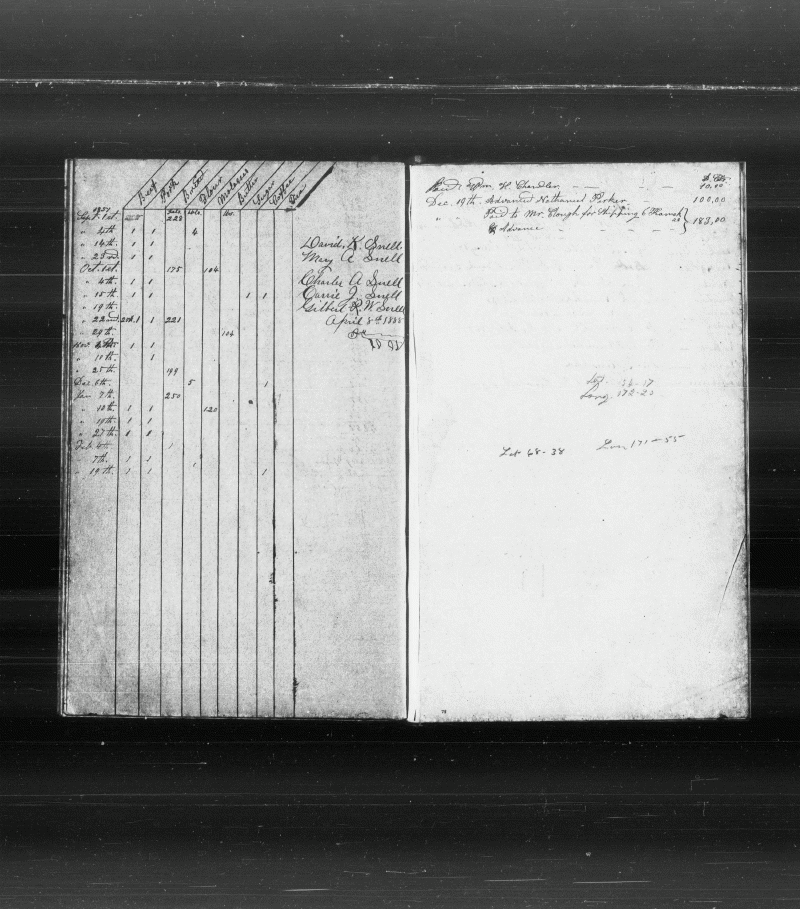 Beef Pork Bread Flour Molasses Butter Sugar Coffee Tea
1857
Sept. 1st. 228
" 4th 1 1 4
" 14th. 1 1
" 23rd 1 1
Oct. 1st. 175 104
" 4th. 1 1
" 15th. 1 1 1 1
" 19th.
" 22nd 1 1 221
" 29th. 104
Nov. 1 1
" 10th. 1
" 25th. 199
Dec. 6th. 5 1
Jan 7th. 250
" 10th. 1 1 120
" 19th. 1 1
" 27th. 1 1
Feb.
7th. 1 1
" 19th. 1 1 1
David K. Snell
Mary A Snell
Charles A Snell
Carrie J. Snell
Gilbert R. W. Snell
April 8th 1888
Paid Wm. H. Chandler 10.00
Dec. 19th. Advanced Nathaniel Parker 100.00
" Paid to Mr. Clough for Shipping 6 183.00
& Advance
Long 172-20
Lat 68-38 Lon 171-55